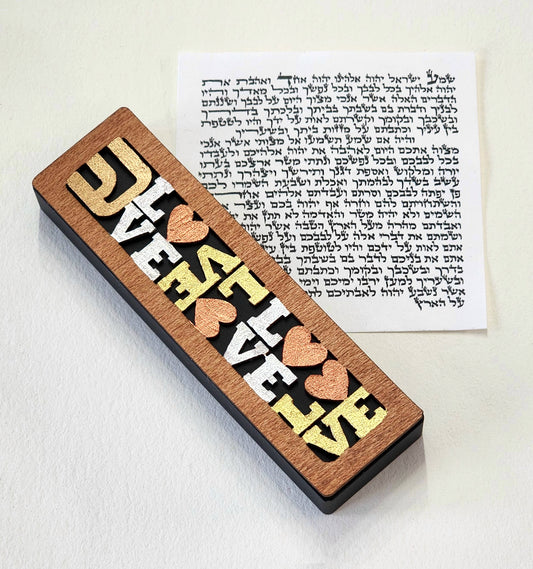 ש
L♥
VE
L♥
VE
L♥
VE
L♥
VE
שמע ישראל יהוה אלהינו יהוה אחד ואהבת את
יהוה אלהיך בכל לבבך ובכל נפשך ובכל מאדך והיו
הדברים האלה אשר אנכי מצוך היום על לבבך ושננתם
לבניך ודברת בם בשבתך בביתך ובלכתך בדרך
ובשכבך ובקומך וקשרתם לאות על ידך והיו לטטפת
בין עיניך וכתבתם על מזזות ביתך ובשעריך
והיה אם שמע תשמעו אל מצותי אשר אנכי
מצוה אתכם היום לאהבה את יהוה אלהיכם ולעבדו
בכל לבבכם ובכל נפשכם ונתתי מטר ארצכם בעתו
יורה ומלקוש ואספת דגנך ותירשך ויצהרך ונתתי
עשב בשדך לבהמתך ואכלת ושבעת השמרו לכם
פן יפתה לבבכם וסרתם ועבדתם אלהים
והשתחויתם להם וחרה אף יהוה בכם ועצר
השמים ולא יהיה מטר והאדמה לא תתן את
ואבדתם מהרה מעל הארץ הטבה אשר יהוה
ושמתם את דברי אלה על לבבכם ועל
אתם לאות על ידכם והיו לטוטפת בין
אתם את בניכם לדבר בם בשבתך
בדרך ובשכבך ובקומך וכתבתם
ובשעריך למען ירבו ימיכם וימי
אשר נשבע יהוה לאבתיכם
על הארץ